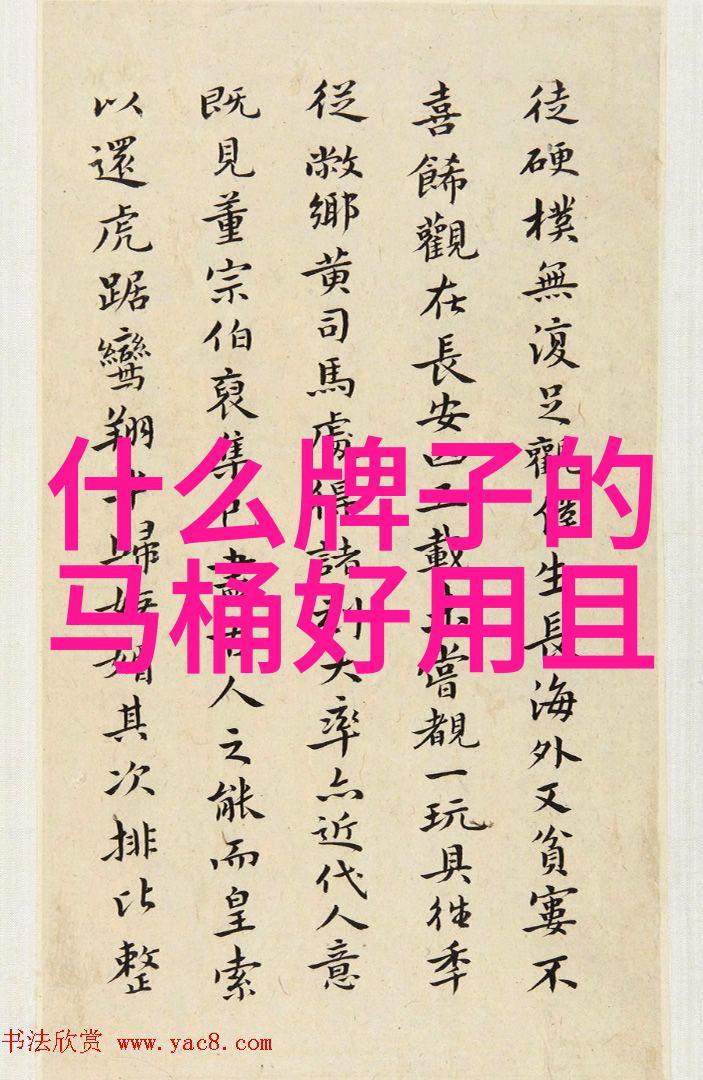 什么牌子的
马桶好用且
徒硬樸無復足觀僅生長海外又貧窶不
喜觀在長安載未嘗覩一玩具往季
從敝鄉黄司馬處得諸刻大率亦近代人意
既見董宗伯裒集人之能而皇索
以還虎踞鸞翔歸媚其次排比整
书法欣赏 www.yac8.com